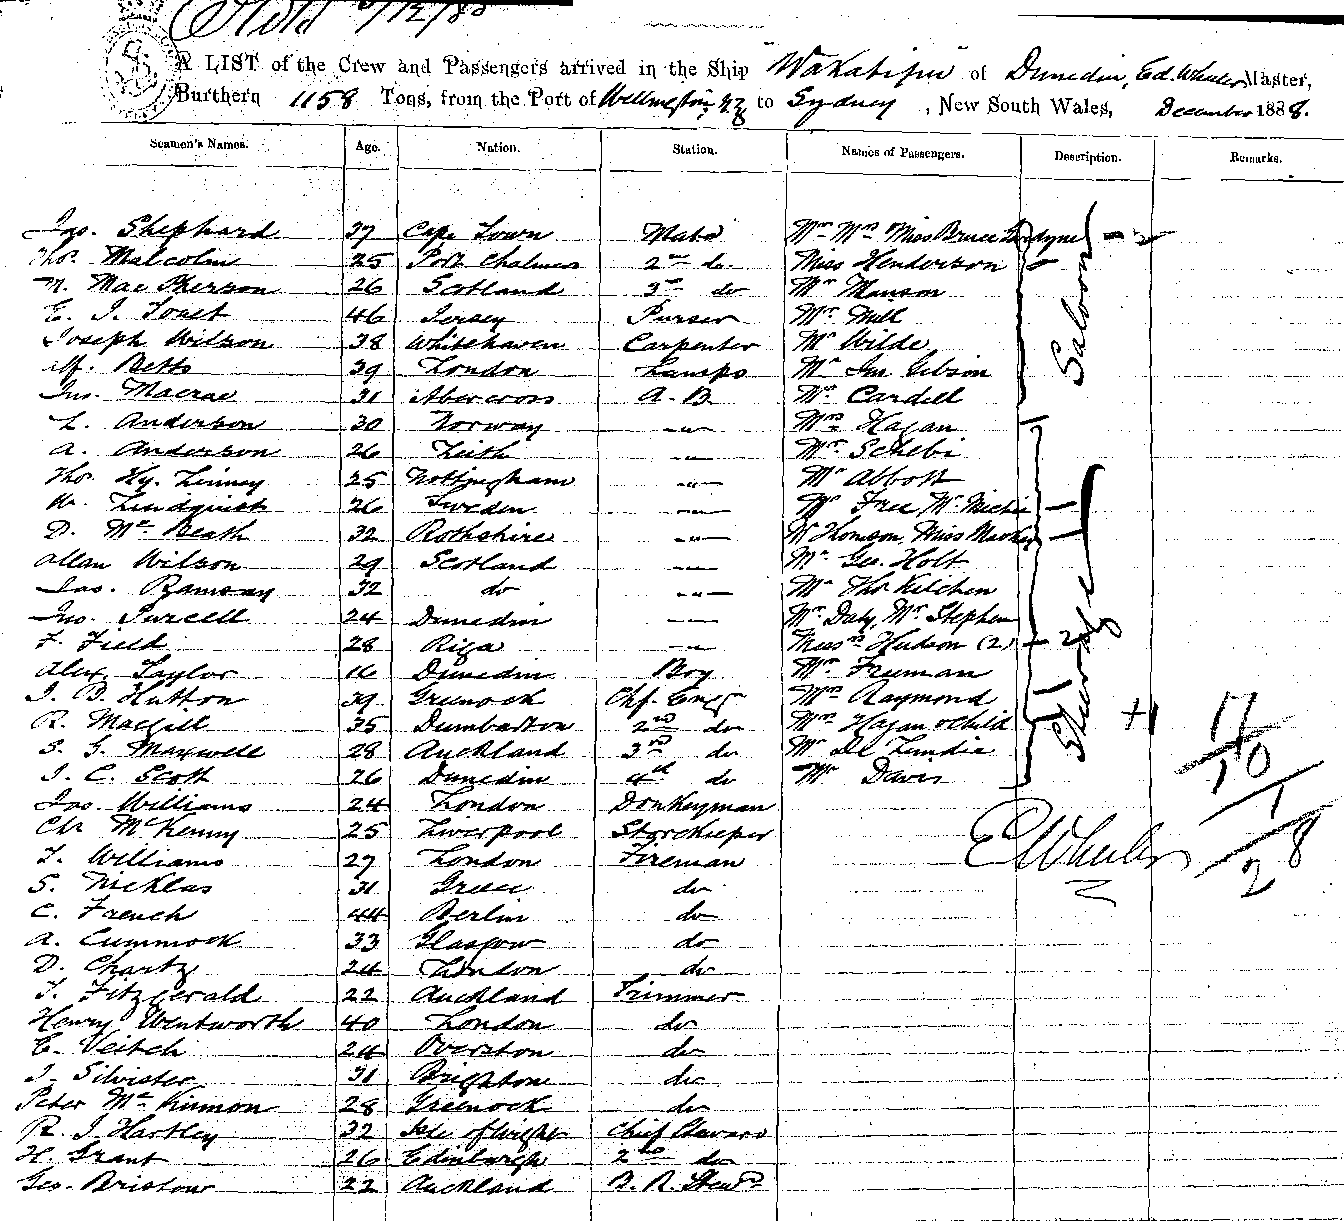 A LIST of the Crew and Passengers arrived in the Ship "Wakatipu" of Dunedin, Ed. Wheeler Master,
Burthern 1158 Tons, from the Port of Wellington N.Z to Sydney, New South Wales, December 1888.
Seamen's Names. Age. Nation. Station. Names of Passengers. Description. Remarks.
Jas. Shephard 37 Cape Town Mate Mr Mrs Miss Bruce
Thos. Malcolm 25 Port Chalmers 2nd do Miss Henderson
N. MacPherson 26 Scotland 3rd do Mr Manson
E. J. 46 Jersey Purser Mill
Joseph Wilson 38 Whitehaven Carpenter Mr Wilde
Alf. Betts 39 London Lamps Mr Gibson
Jno. Macrae 31 Abercross A.B. Cardell
L. Anderson 30 Norway -"- Mrs Hagan
A. Anderson 26 Leith -"- Mr Schebi
Thos. Hy. Linney 25 Nottingham -"- Mr Abbott
W. Lindquist 26 Sweden -"- Mr Free, Mr Michie
D. McBeath 32 Rothshire -"- Thomson, Miss
Allan Wilson 29 Scotland -"- Mr Geo. Holt
Jas. Ramsay 32 do -"- Mr Thos Kitchen
Jno. Purcell 24 Dunedin -"- Mr Daly, Mr Stephen
F. Field 28 Riga -"- Hudson (2)
Alex. Taylor 16 Dunedin Boy Freeman
J. B. Hutton 39 Greenock Chf. Engr Raymond
R. Macgill 35 Dumbarton 2nd do Mrs Hagan & Child
S. G. Maxwell 28 Auckland 3rd do Mr De
J. C. Scott 26 Dunedin 4th do Mr Davis
Jas. Williams 24 London Donkeyman
Chr McKenny 25 Liverpool Storekeeper
T. Williams 27 London Fireman
S. Nicklas 31 Greece do
C. French 44 Berlin do
A. Cummock 33 Glasgow do
D. Chartz 24 London do
T. Fitzgerald 22 Auckland Trimmer
Henry Wentworth 40 London do
E. Veitch 24 Overston do
J. Silvister 31 Brighton do
Peter McKinnon 28 Greenock do
R. J. Hartley 32 Isle of Wight Chief Steward
H. Grant 26 Edinburgh 2nd do
Geo. Bristow 22 Auckland B. R. Stewd
Saloon
Steerage
17
10
1
28
E Wheeler